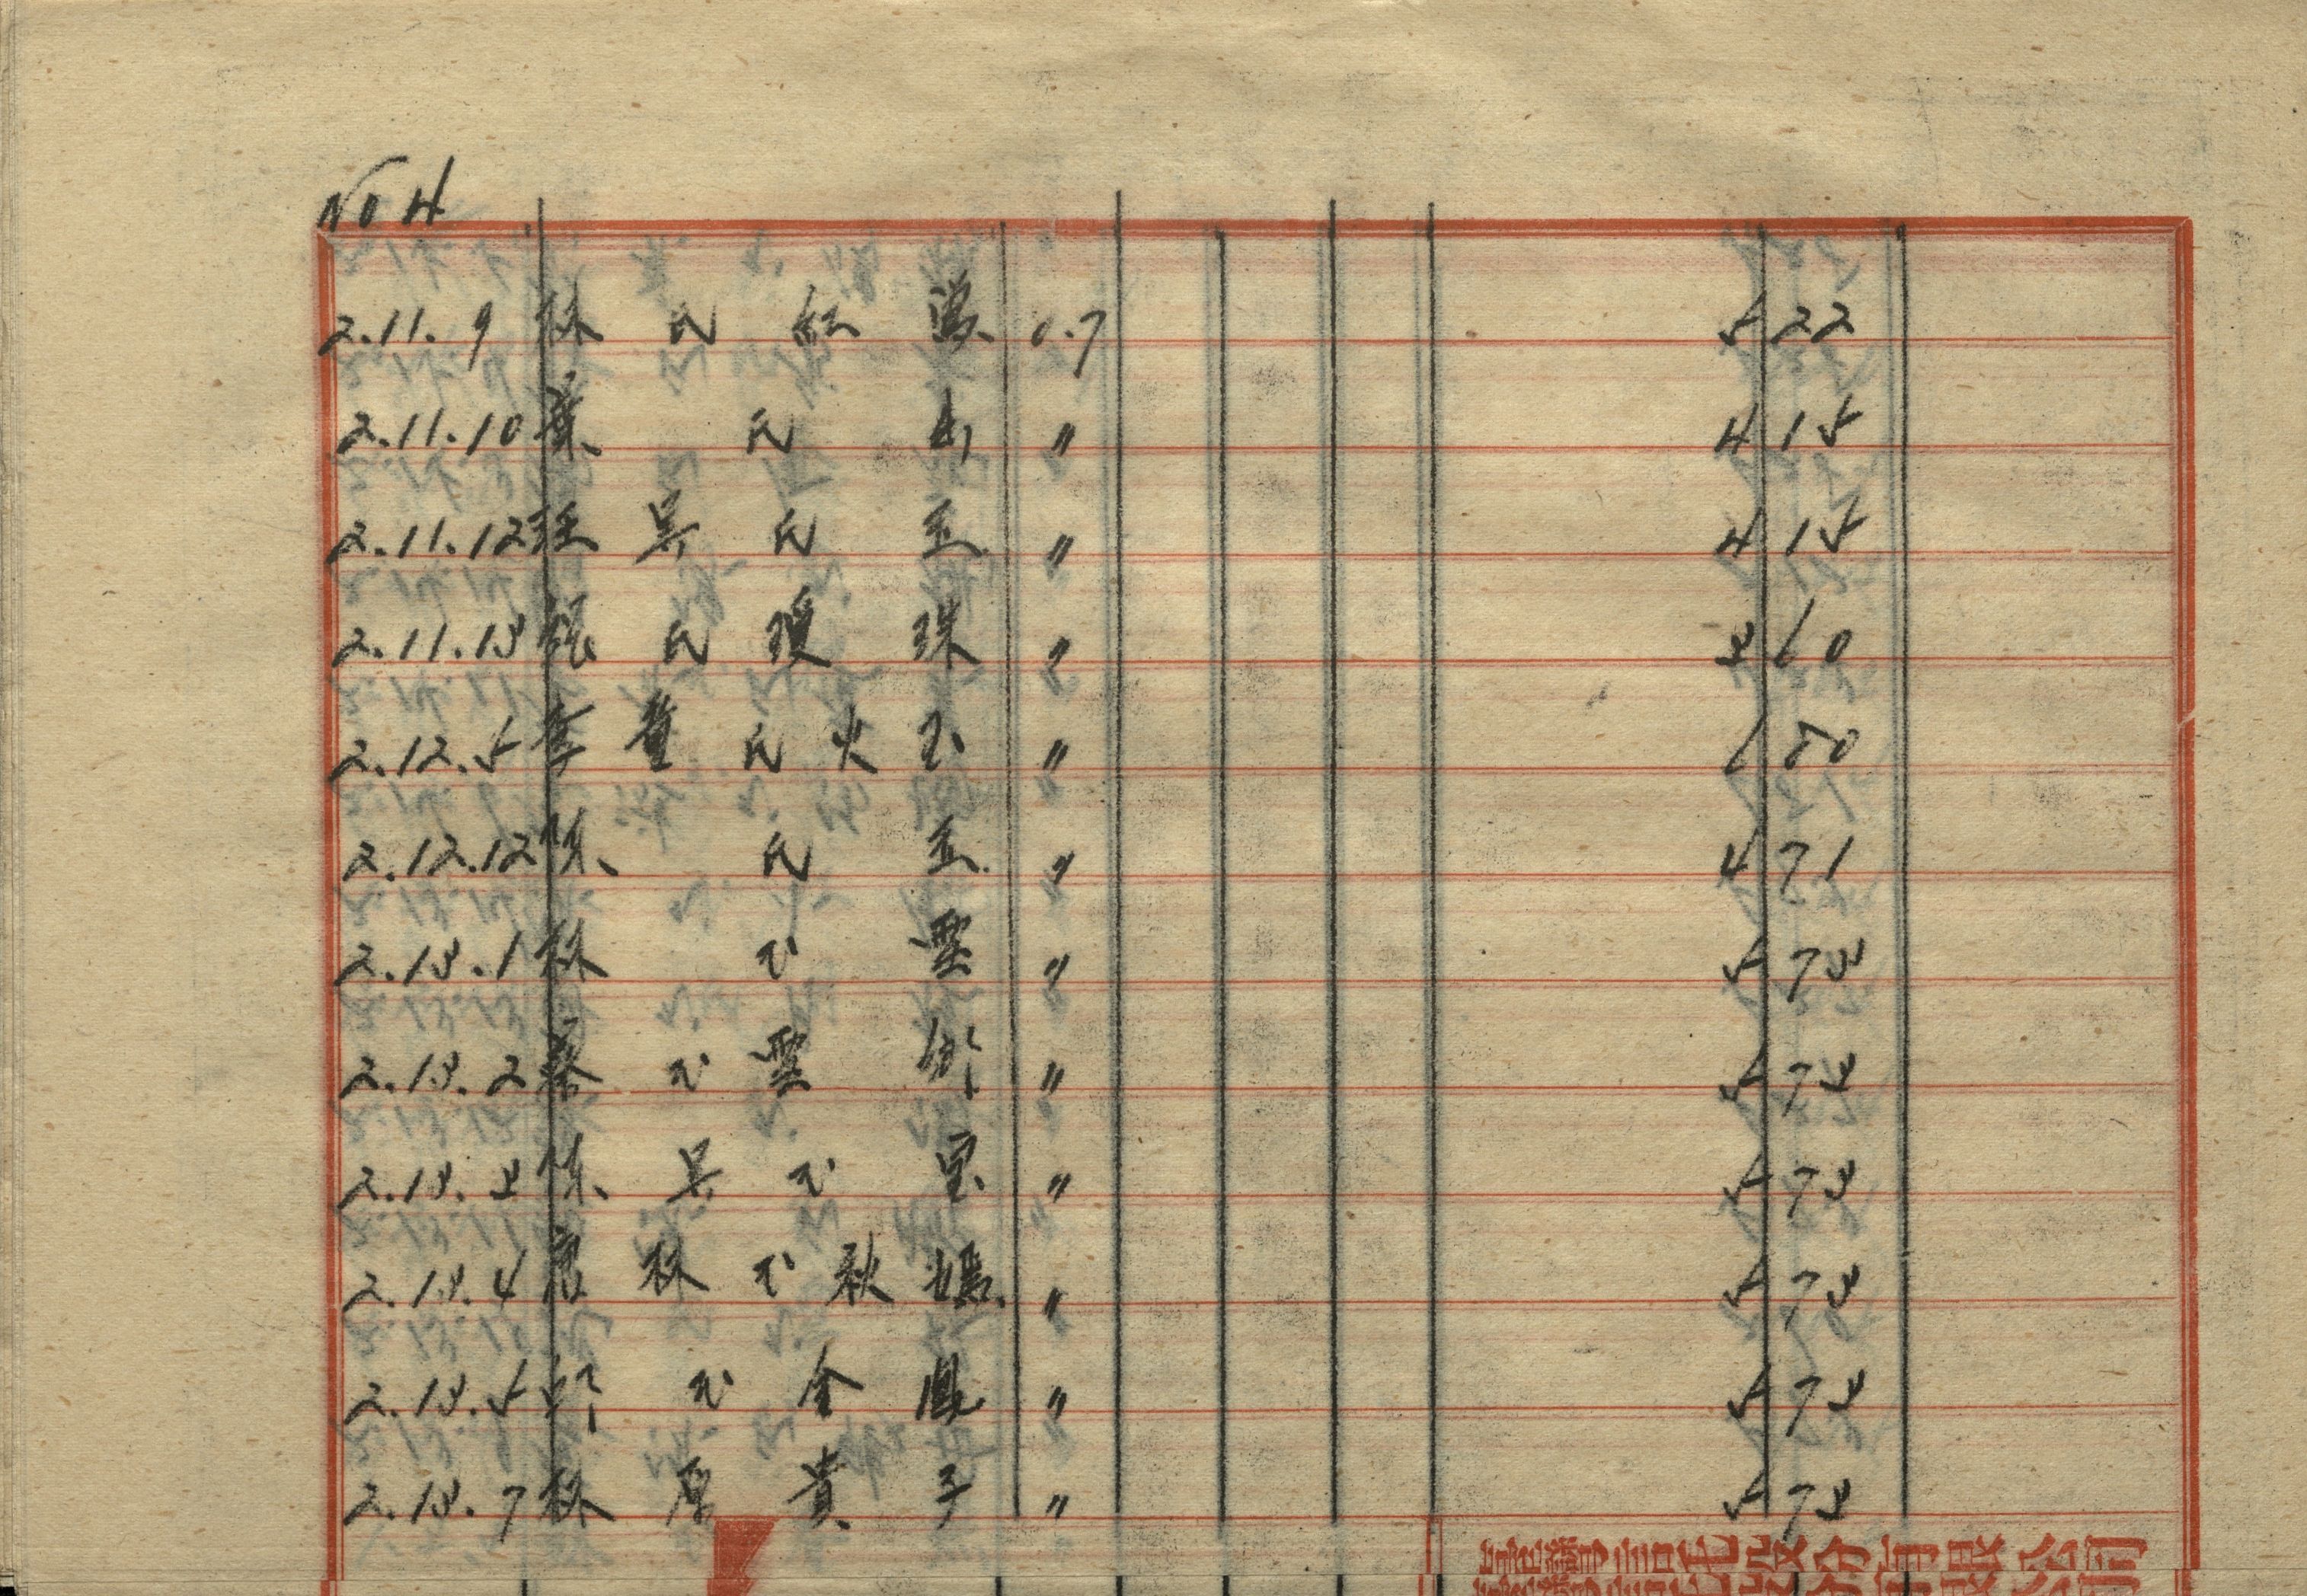 No 4
2.11.9 林氏紅 0.7 5 22
2.11.10 葉氏 〃 4 15
2.11.12 汪吳氏玉 〃 4 15
2.11.13 張氏瓊珠 〃 3 60
2.12.5 李黃氏火玉 〃 6 80
2.12.12 陳氏玉 〃 4 71
2.13.1 林氏雲 〃 5 73
2.13.2 蔡氏雲 〃 5 73
2.13.3 陳吳氏宝 〃 5 73
2.13.4 林氏秋 〃 5 73
2.13.5 氏金 〃 5 73
2.13.7 林厚貴子 〃 5 73